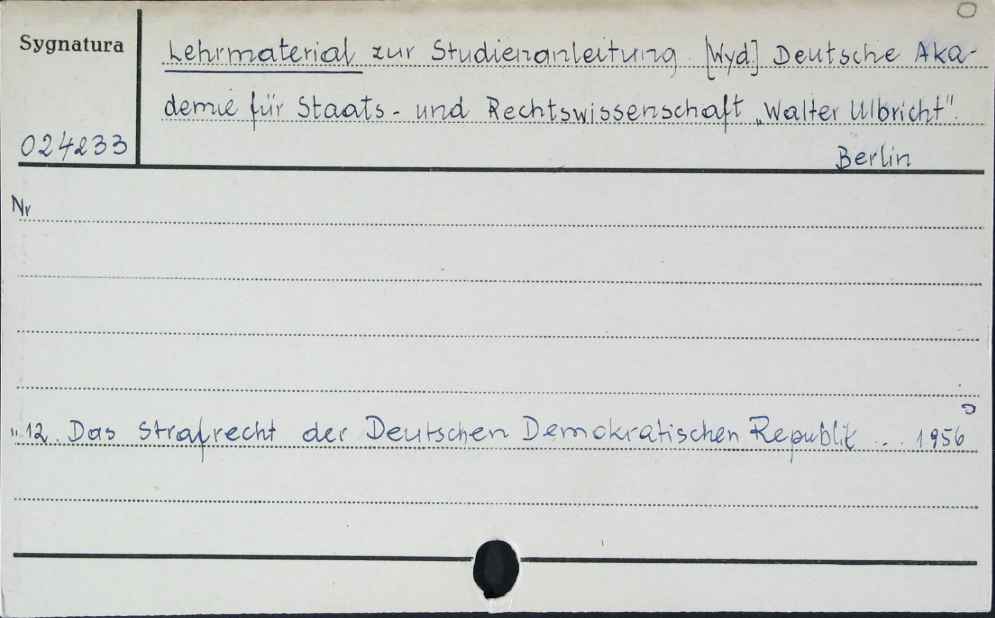 Sygnatura
Lehrmaterial zur Studienanleitung. [Wyd.] Deutsche Aka-
demie für Staats- und Rechtswissenschaft „Walter Ulbricht".
024233
Berlin
Nr
" 12. Das Strafrecht der Deutschen Demokratischen Republik ... 1956